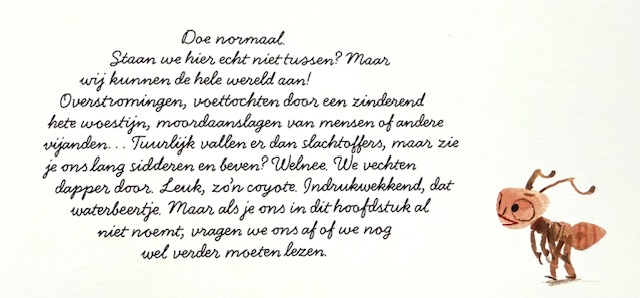 Doe normaal.
Staan we hier echt niet tussen? Maar
wij kunnen de hele wereld aan!
Overstromingen, voettochten door een zinderend
hete woestijn, moordaanslagen van mensen of andere
vijanden... Tuurlijk vallen er dan slachtoffers, maar zie
je ons lang sidderen en beven? Welnee. We vechten
dapper door. Leuk, zo'n coyote. Indrukwekkend, dat
waterbeertje. Maar als je ons in dit hoofdstuk al
niet noemt, vragen we ons af of we nog
wel verder moeten lezen.